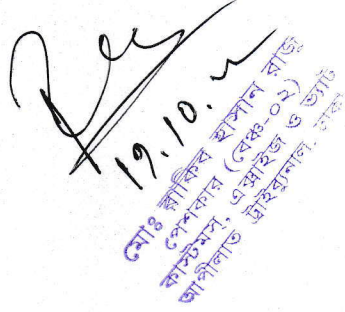 19.10.
মোঃ রাকিব হাসান রাজু
পেশকার (বেঞ্চ-০২)
কাস্টমস, এক্সাইজ ও ভ্যাট
আপীলাত ট্রাইব্যুনাল, ঢাকা